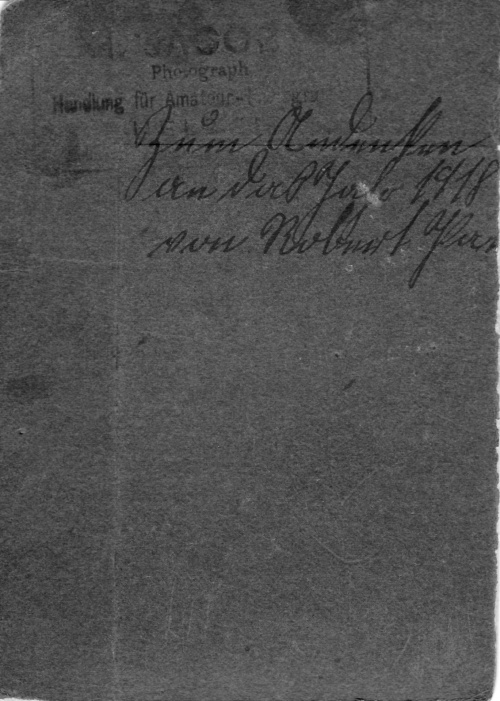 Photograph
Handlung für Amateur-
Zum Andenken
an das Jahr 1918
von Robert